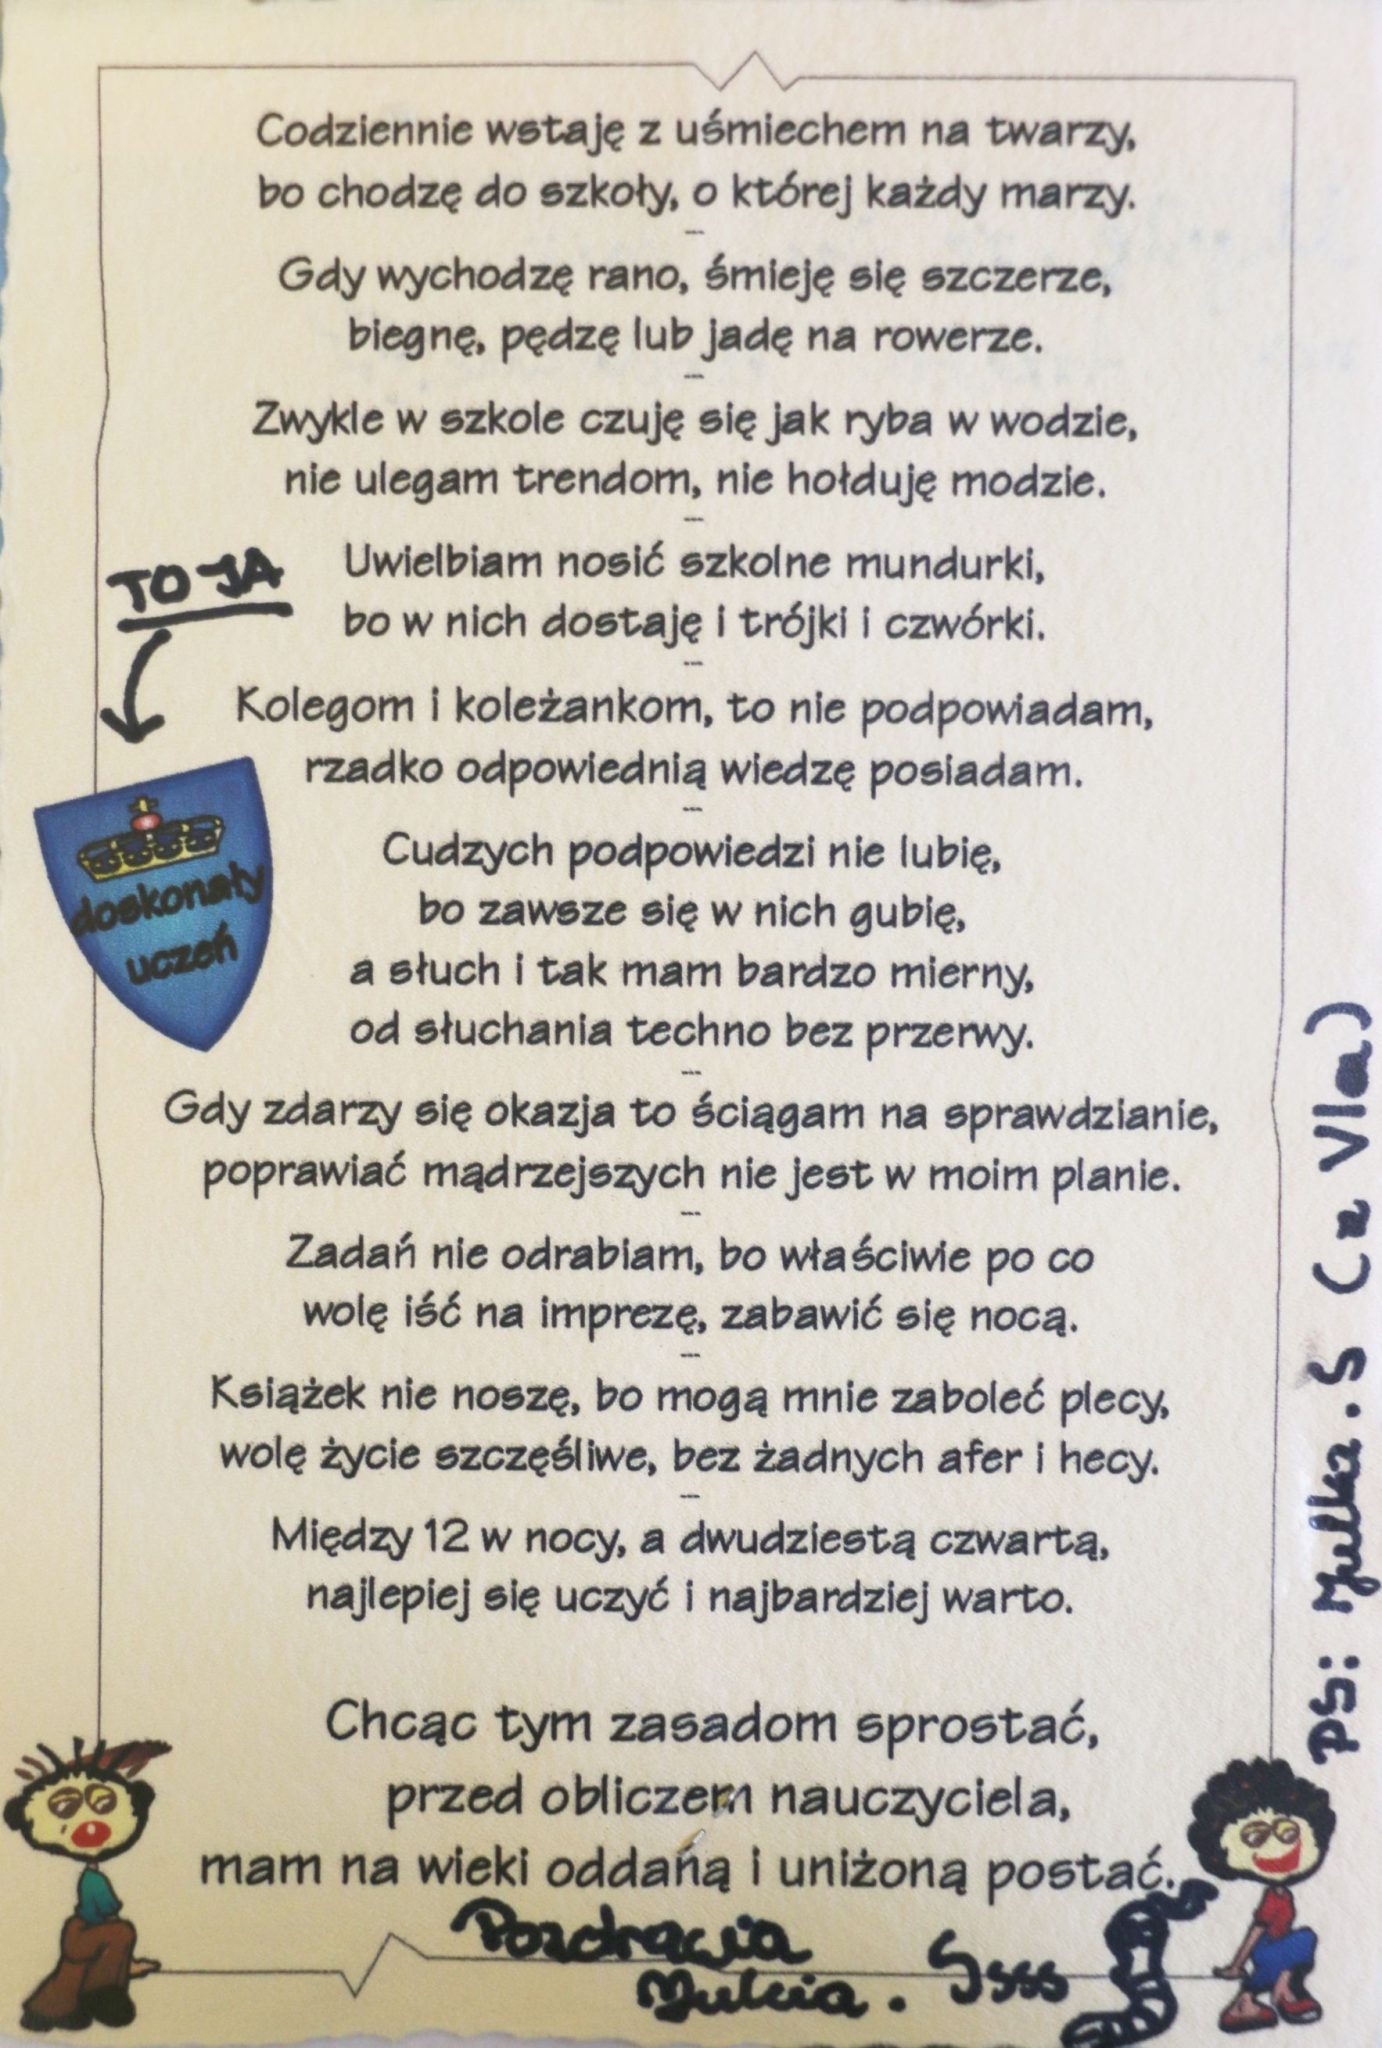 Codziennie wstaję z uśmiechem na twarzy,
bo chodzę do szkoły, o której każdy marzy.
---
Gdy wychodzę rano, śmieję się szczerze,
biegnę, pędzę lub jadę na rowerze.
---
Zwykle w szkole czuję się jak ryba w wodzie,
nie ulegam trendom, nie hołduję modzie.
---
Uwielbiam nosić szkolne mundurki,
bo w nich dostaję i trójki i czwórki.
---
Kolegom i koleżankom, to nie podpowiadam,
rzadko odpowiednią wiedzę posiadam.
---
Cudzych podpowiedzi nie lubię,
bo zawsze się w nich gubię,
a słuch i tak mam bardzo mierny,
od słuchania techno bez przerwy.
---
Gdy zdarzy się okazja to ściągam na sprawdzianie,
poprawiać mądrzejszych nie jest w moim planie.
---
Zadań nie odrabiam, bo właściwie po co
wolę iść na imprezę, zabawić się nocą.
---
Książek nie noszę, bo mogą mnie zaboleć plecy,
wolę życie szczęśliwe, bez żadnych afer i hecy.
---
Między 12 w nocy, a dwudziestą czwartą,
najlepiej się uczyć i najbardziej warto.
Chcąc tym zasadom sprostać,
przed obliczem nauczyciela,
mam na wieki oddaną i uniżoną postać.
TO JA
doskonały
uczeń
Pozdrawia
Julcia. Ssss
PS: Julka.S (z VIa)